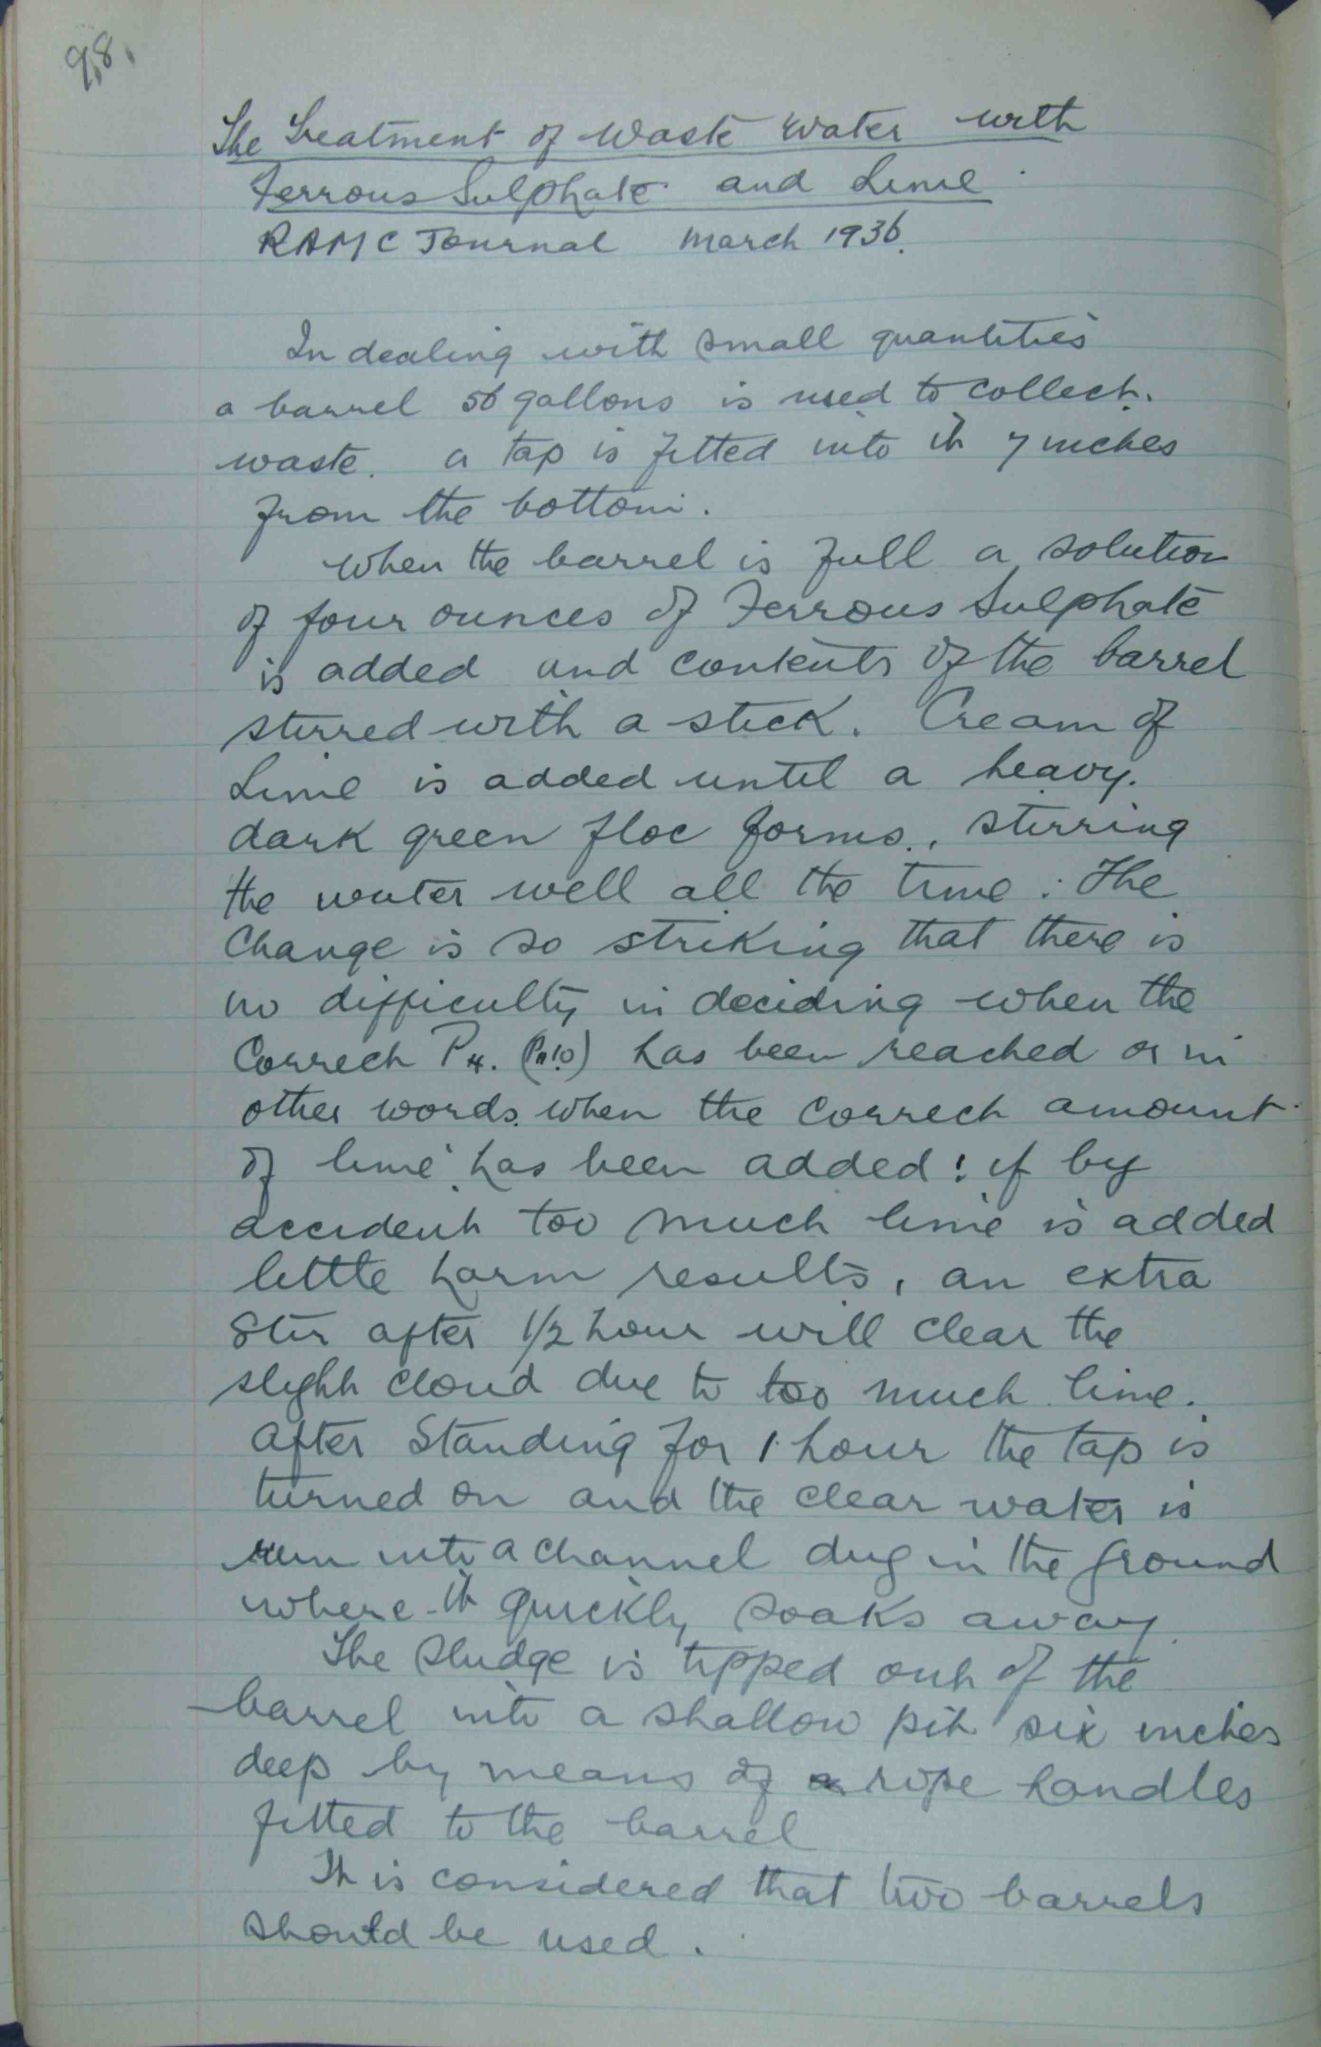 98.
The Treatment of Waste Water with
Ferrous Sulphate and Lime
RAMC Journal March 1936.
In dealing with small quantities
a barrel 50 gallons is used to collect.
waste. a tap is fitted into it 7 inches
from the bottom.
When the barrel is full a solution
of four ounces of Ferrous Sulphate
is added and contents of the barrel
stirred with a stick. Cream of
Lime is added until a heavy.
dark green floc forms., stirring
the water well all the time. The
Change is so striking that there is
no difficulty in deciding when the
Correct PH. (PH10) has been reached or in
other words when the correct amount
of lime has been added; if by
accident too much lime is added
little harm results, an extra
Stir after 1/2 hour will clear the
slight cloud due to too much lime.
After Standing for 1 hour the tap is
turned on and the clear water is
run into a channel dug in the ground
where it quickly soaks away.
The sludge is tipped out of the
barrel into a shallow pit six inches
deep by means of rope handles
fitted to the barrel
It is considered that two barrels
should be used.